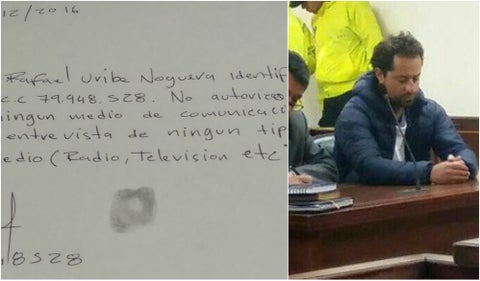 12/2016
Rafael Uribe Noguera Identif
c.c 79.948.528. No autorizo
ningun medio de comunicaci
entrevista de ningun tip
edio (Radio, Television etc
8528